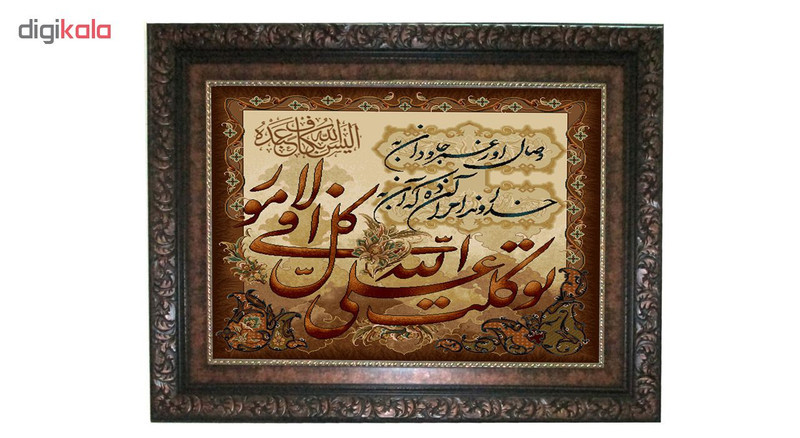 digikala
وصال او ز عمر جاودان به
خداوندا مرا آن ده که آن به
الیس الله بکاف عبده
توکلت علی الله فی کل الامور